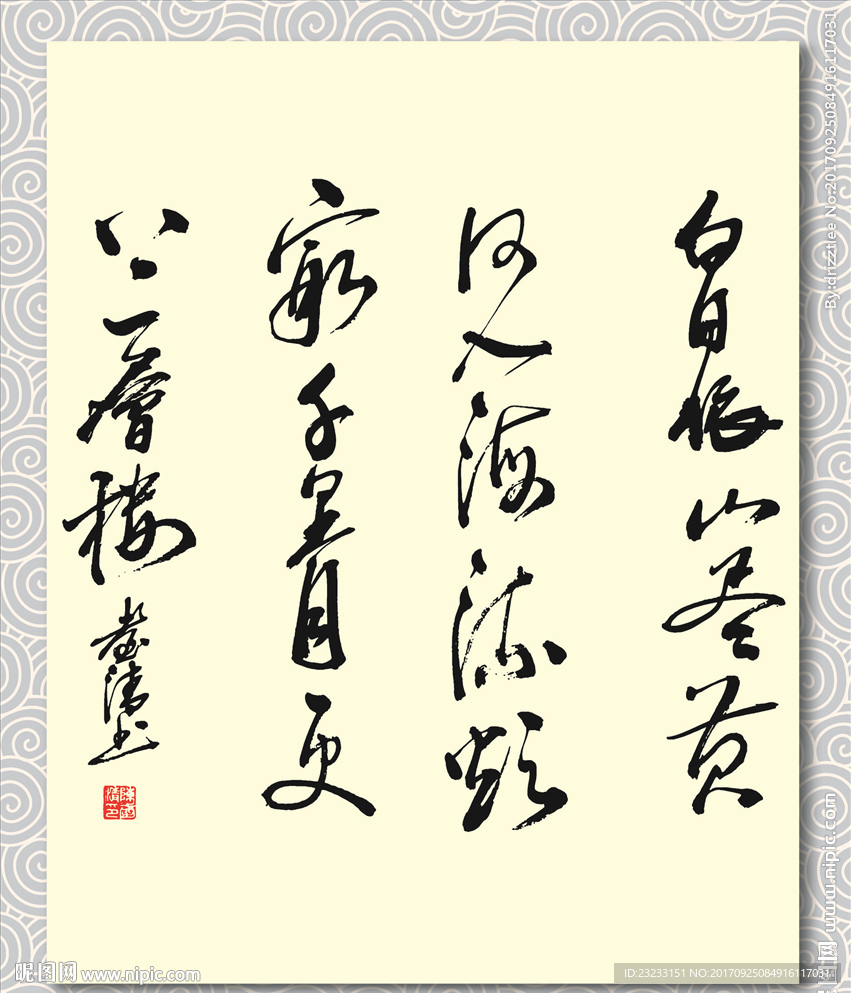 白日依山尽黄
河入海流欲
窮千里目更
上一層樓
清书
By:drizztlee No:20170925084916117031
昵图网 www.nipic.com
昵图网 www.nipic.com
ID:23233151 NO:20170925084916117031